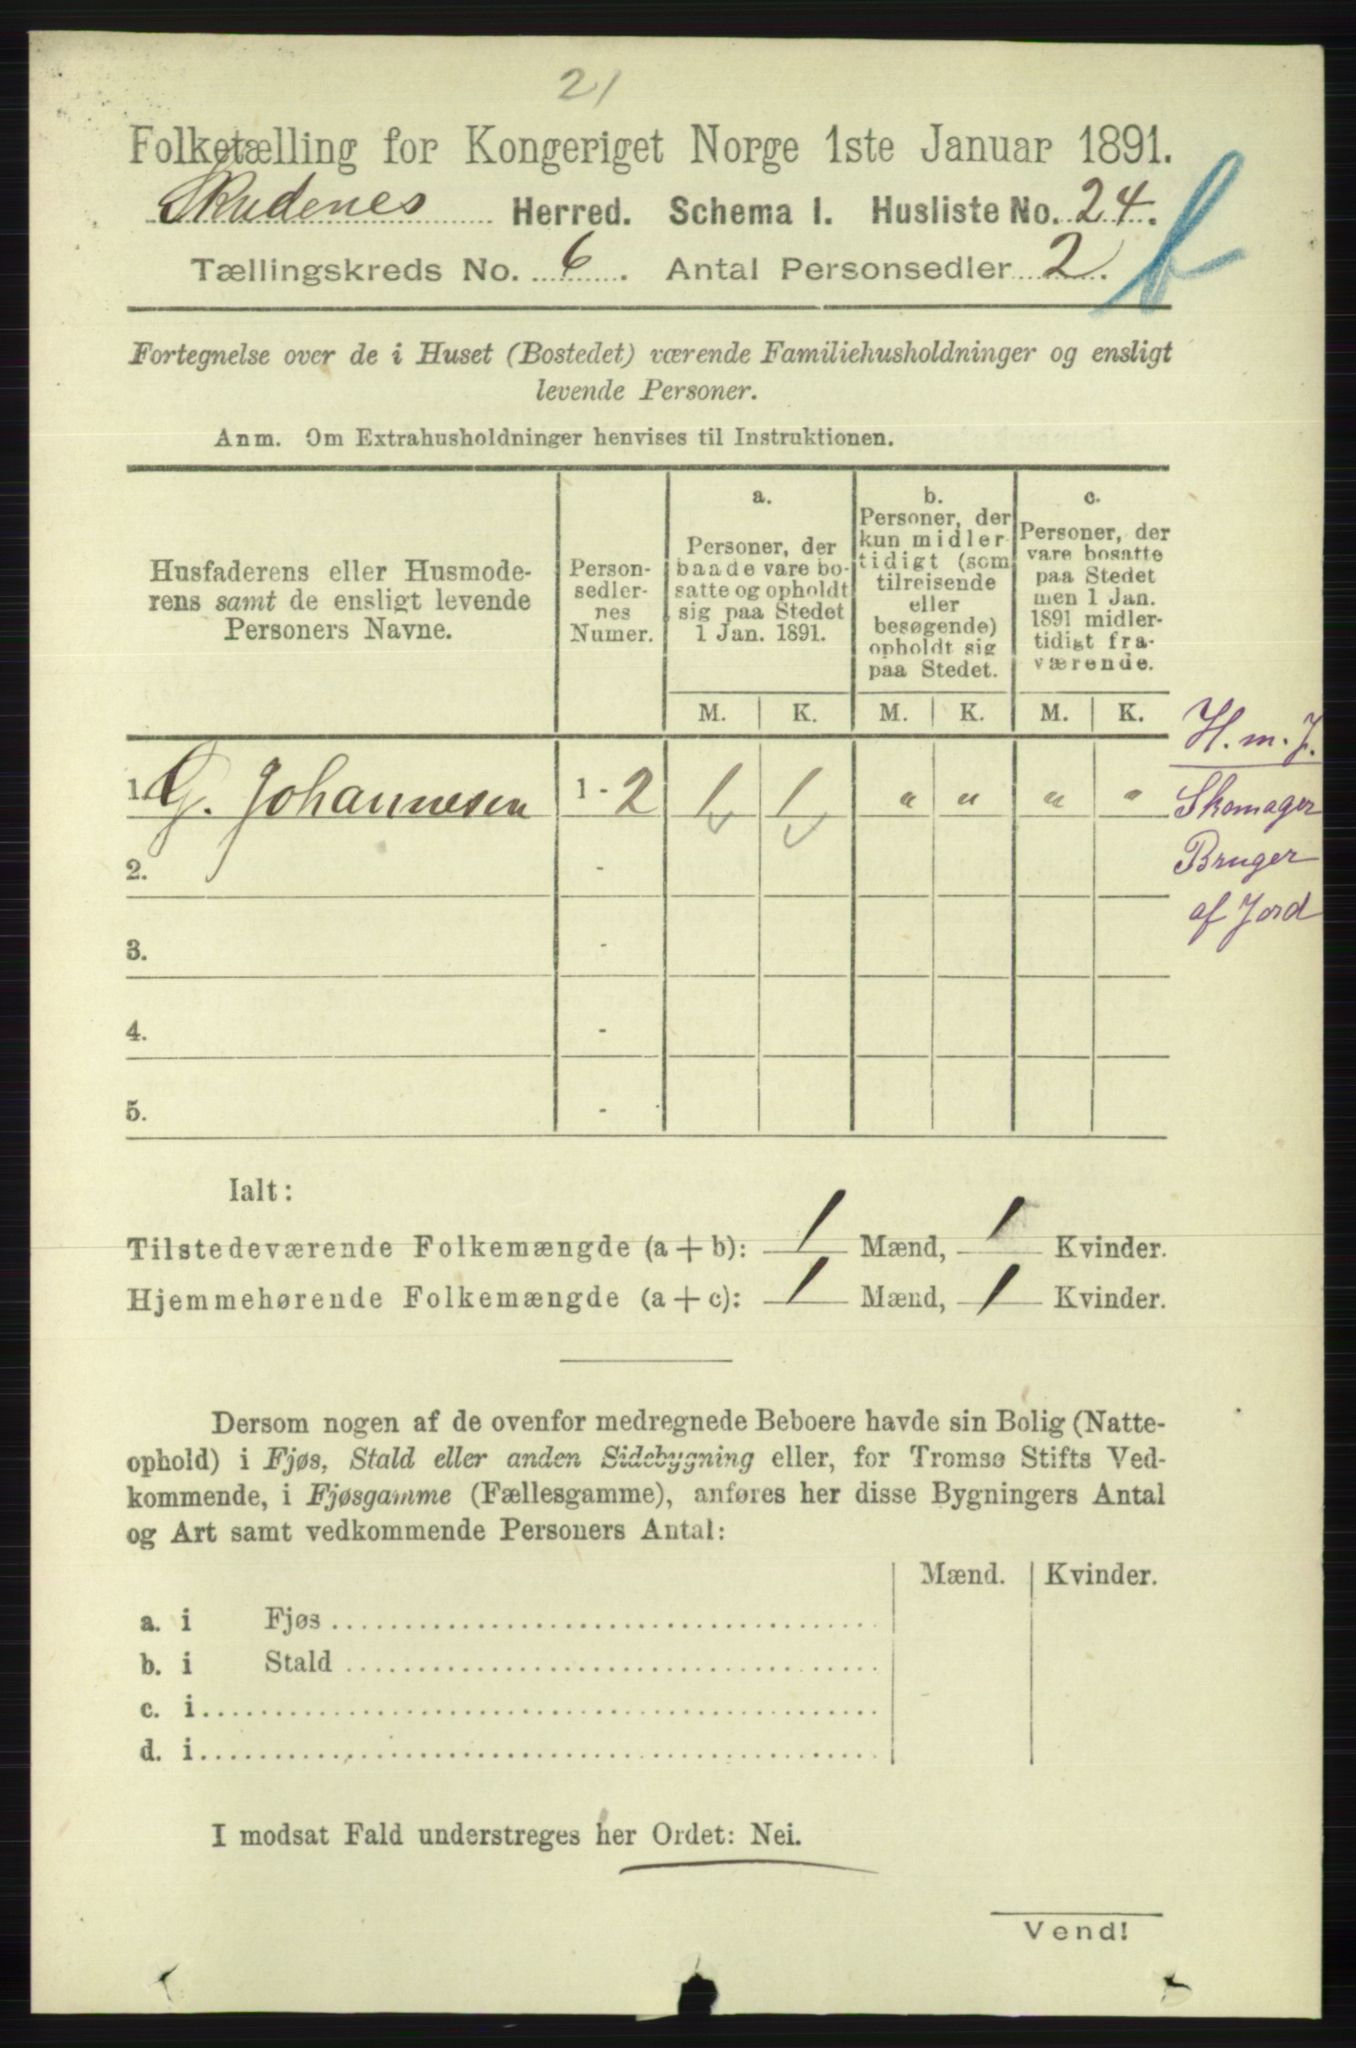 21
Folketælling for Kongeriget Norge 1ste Januar 1891.
Skudenes Herred. Schema I. Husliste No. 24.
b
Tællingskreds No. 6. Antal Personsedler 2.
Fortegnelse over de i Huset (Bostedet) værende Familiehusholdninger og ensligt
levende Personer.
Anm. Om Extrahusholdninger henvises til Instruktionen.
Husfaderens eller Husmode-
rens samt de ensligt levende
Personers Navne.
Person-
sedler-
nes
Numer.
a.
Personer, der
baade vare bo-
satte og opholdt
sig paa Stedet
1 Jan. 1891.
b.
Personer, der
kun midler-
tidigt (som
tilreisende
eller
besøgende)
opholdt sig
paa Stedet.
c.
Personer, der
vare bosatte
paa Stedet
men 1 Jan.
1891 midler-
tidigt fra-
værende.
M. K. M. K. M. K.
H. m. J.
1. G. Johannesen 1 - 2 1 1 " " " "
Skomager
Bruger
af Jord
2. -
3. -
4. -
5. -
Ialt:
Tilstedeværende Folkemængde (a + b): 1 Mænd, 1 Kvinder.
Hjemmehørende Folkemængde (a + c): 1 Mænd, 1 Kvinder.
Dersom nogen af de ovenfor medregnede Beboere havde sin Bolig (Natte-
ophold) i Fjøs, Stald eller anden Sidebygning eller, for Tromsø Stifts Ved-
kommende, i Fjøsgamme (Fællesgamme), anføres her disse Bygningers Antal
og Art samt vedkommende Personers Antal:
Mænd. Kvinder.
a. i Fjøs
b. i Stald
c. i
d. i
I modsat Fald understreges her Ordet: Nei.
Vend!